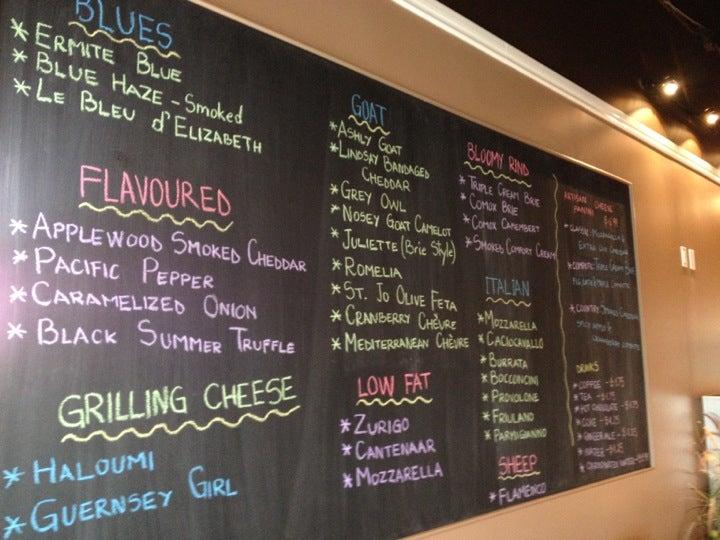 BLUES
* ERMITE BLUE
* BLUE HAZE - Smoked
* LE BLEU d'ELIZABETH
FLAVOURED
* APPLEWOOD SMOKED CHEDDAR
* PACIFIC PEPPER
* CARAMELIZED ONION
* BLACK SUMMER TRUFFLE
GRILLING CHEESE
* HALOUMI
* GUERNSEY GIRL
GOAT
* ASHLY GOAT
* LINDSAY BANDAGED
CHEDDAR
* GREY OWL
* NOSEY GOAT CAMELOT
* JULIETTE (BRIE STYLE)
* ROMELIA
* ST. JO OLIVE FETA
* CRANBERRY CHÈVRE
* MEDITERRANEAN CHÈVRE
LOW FAT
* ZURIGO
* CANTENAAR
* MOZZARELLA
BLOOMY RIND
* TRIPLE CREAM BRIE
* COMOX BRIE
* COMOX CAMEMBERT
* SMOKED COMFORT CREAM
ITALIAN
* MOZZARELLA
* CACIOCAVALLO
* BURRATA
* BOCCONCINI
* PROVOLONE
* FRIULANO
* PARMIGIANNO
SHEEP
* FLAMENCO
ARTISAN CHEESE
PANINI
DRINKS
* COFFEE
* TEA
* HOT CHOCOLATE
* COKE
* GINGERALE
* COUNTRY SMOKED CHEDDAR